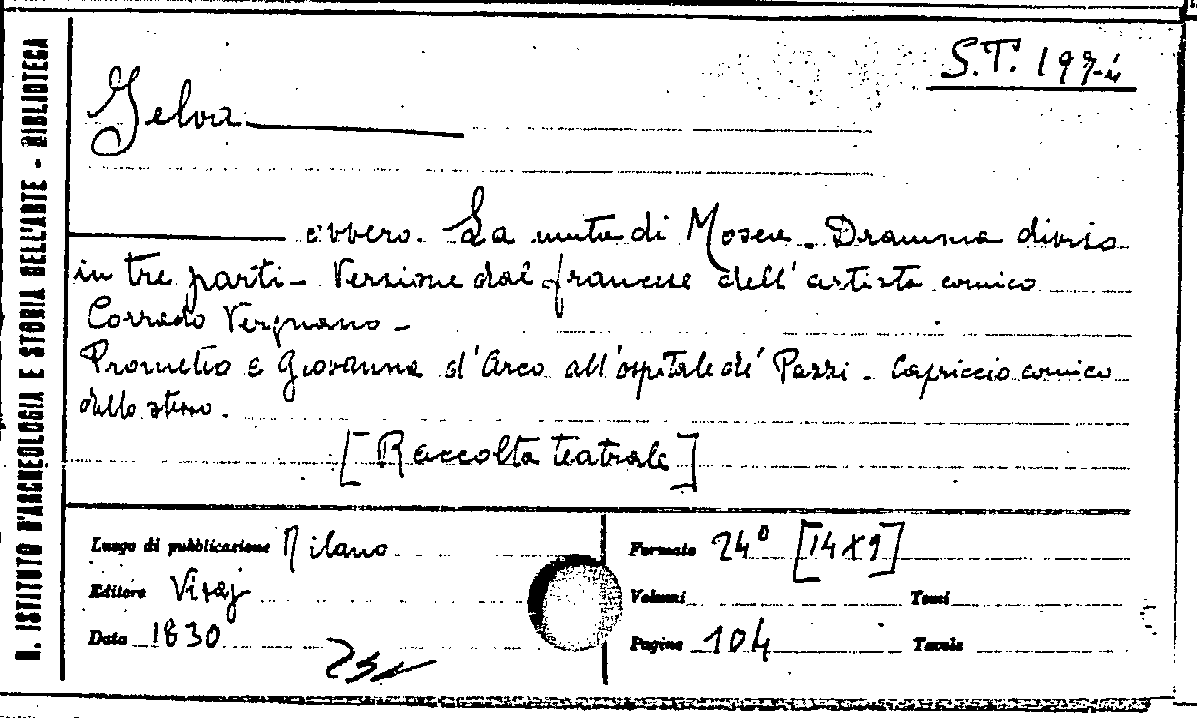 R. ISTITUTO D'ARCHEOLOGIA E STORIA DELL'ARTE - BIBLIOTECA
S.T. 199-4
Yelva
ovvero. La muta di Mosca. Dramma diviso
in tre parti - Versione dal francese dell'artista comico
Corrado Vergnano -
Prometeo e Giovanna d'Arco all'ospitale dei Pazzi. Capriccio comico
dello stesso.
[Raccolta teatrale]
Luogo di pubblicazione Milano
Formato 24° [14x9]
Editore Visaj
Volumi Tomi
Data 1830
Pagine 104 Tavole